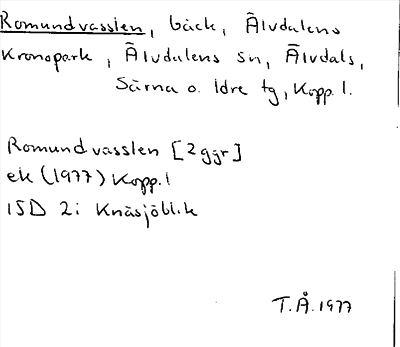 Romundvasslen, bäck, Älvdalens
Kronopark, Älvdalens sn, Älvdals,
Särna o. Idre tg, Kopp. l.
Romundvasslen [2ggr]
ek (1977) Kopp. l
ISD 2: Knäsjöblik
T.Å. 1977